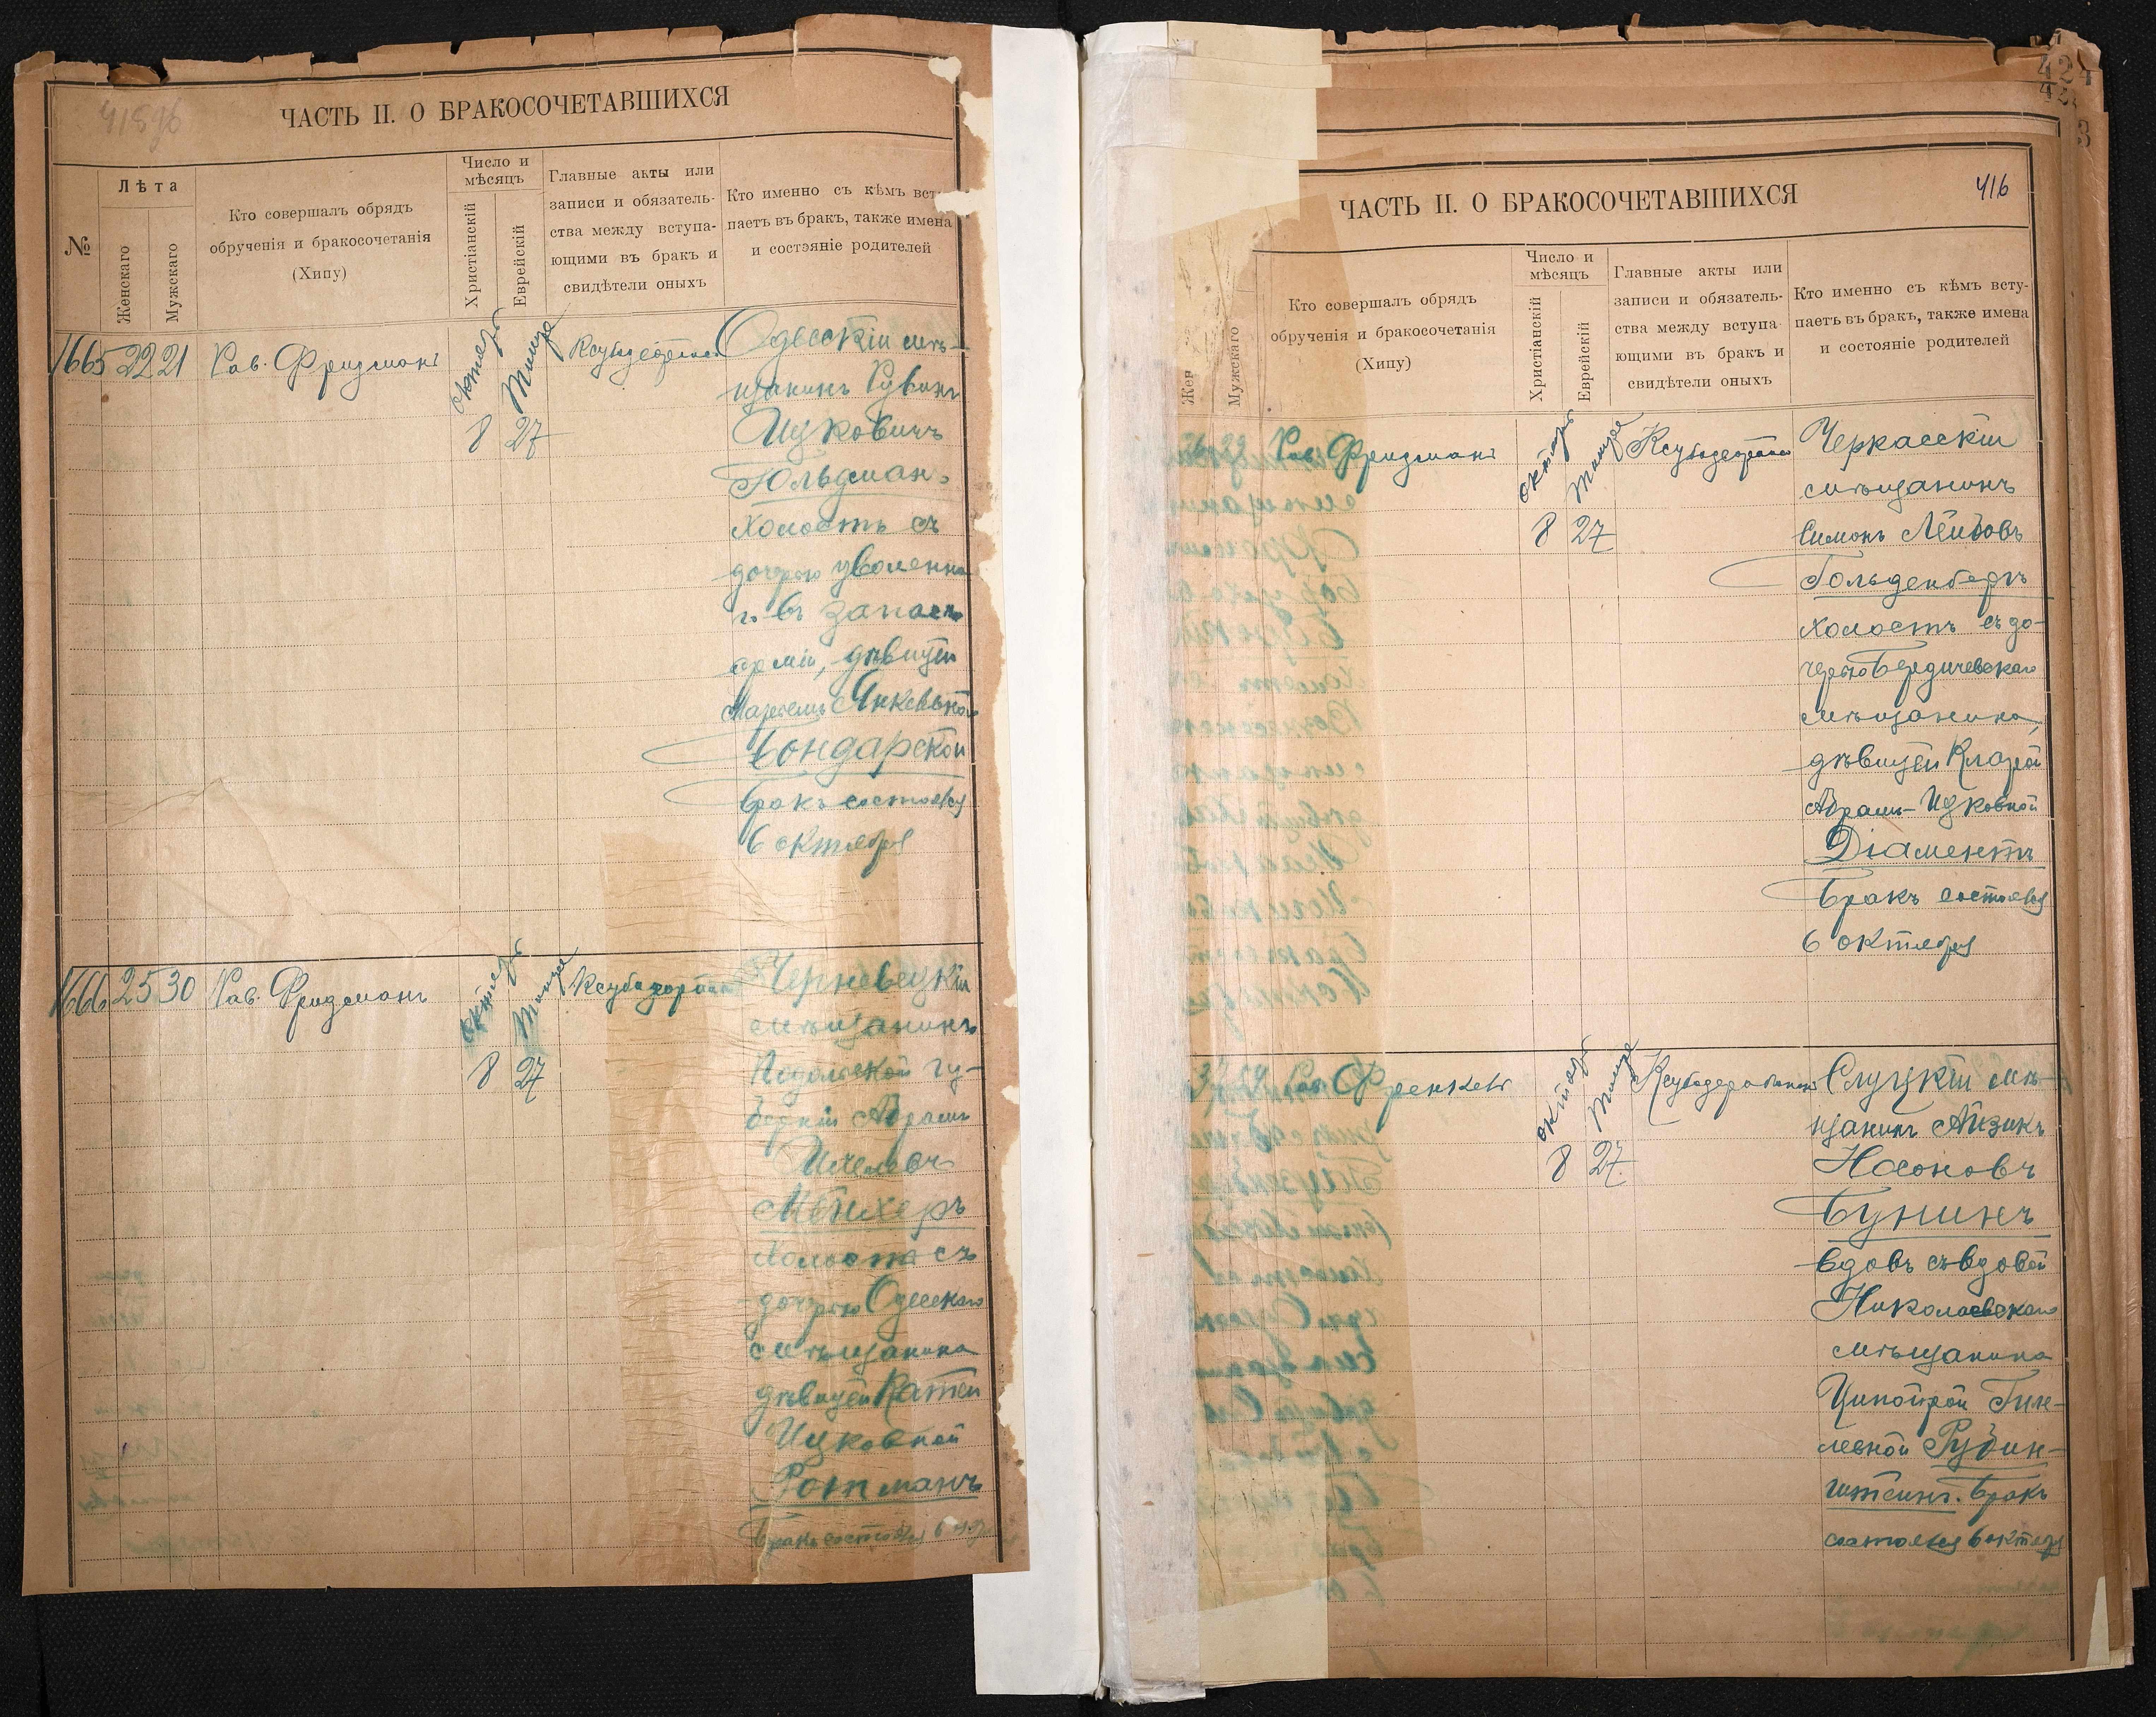 ЧАСТЬ II. О БРАКОСОЧЕТАВШИХСЯ
№
Лѣта
Женскаго
Мужскаго
Кто совершалъ обрядъ
обрученія и бракосочетанія
(Хипу)
Число и
мѣсяцъ
Христіанскій
Еврейскій
Главные акты или
записи и обязатель-
ства между вступа-
ющими въ бракъ и
свидѣтели оныхъ
Кто именно съ кѣмъ всту
паетъ въ бракъ, также имена
и состояніе родителей
1665 22 21 Рав. Фридманъ
октябрь 8
Тишре 27
Одесскій мѣ-
щанинъ Рувинъ
Ицковичъ
Гольдман.
холостъ съ
дочерью уволенна
г. въ запасъ
арміи, дѣвицей
Янкевной
Бондарской
Бракъ состоялся
6 октября
1666 25 30 Рав. Фридманъ
октябрь 8
Тишре 27
Черневецкій
мѣщанинъ
Подольской гу-
берніи Абрамъ
Мейхеръ
холостъ съ
дочерью Одесскаго
мѣщанина
дѣвицей Катей
Ицковной
Ротманъ
Бракъ состоялся 6
424
416
ЧАСТЬ II. О БРАКОСОЧЕТАВШИХСЯ
Жен
Мужскаго
Кто совершалъ обрядъ
обрученія и бракосочетанія
(Хипу)
Число и
мѣсяцъ
Христіанскій
Еврейскій
Главные акты или
записи и обязатель-
ства между вступа
ющими въ бракъ и
свидѣтели оныхъ
Кто именно съ кѣмъ всту-
паетъ въ бракъ, также имена
и состояніе родителей
Рав. Фридманъ
октябрь 8
Тишре 27
Черкасскій
мѣщанинъ
Симонъ Лейбовъ
Гольденбергъ
холостъ съ до-
черью Бердичевскаго
мѣщанина,
дѣвицей Кларой
Абрамъ-Ицковной
Діаментъ
Бракъ состоялся
6 октября
Рав. Френкель
октябрь 8
Тишре 27
Слуцкій мѣ-
щанинъ Айзикъ
Насоновъ
Бунинъ
вдовъ съ вдовой
Николаевскаго
мѣщанина
Ципойрой Гиле-
левной Рубин-
штейнъ. Бракъ
состоялся 6 октябр